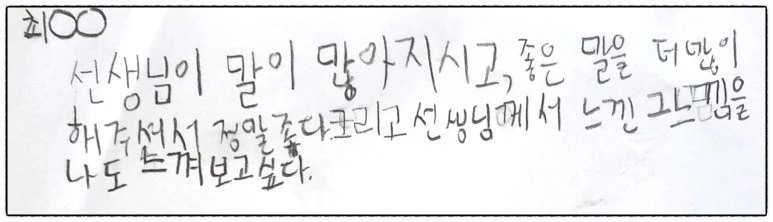 최〇〇
선생님이 말이 많아지시고, 좋은 말을 더 많이
해주셔서 정말 좋다 그리고 선생님께서 느낀 그 느낌을
나도 느껴보고싶다.